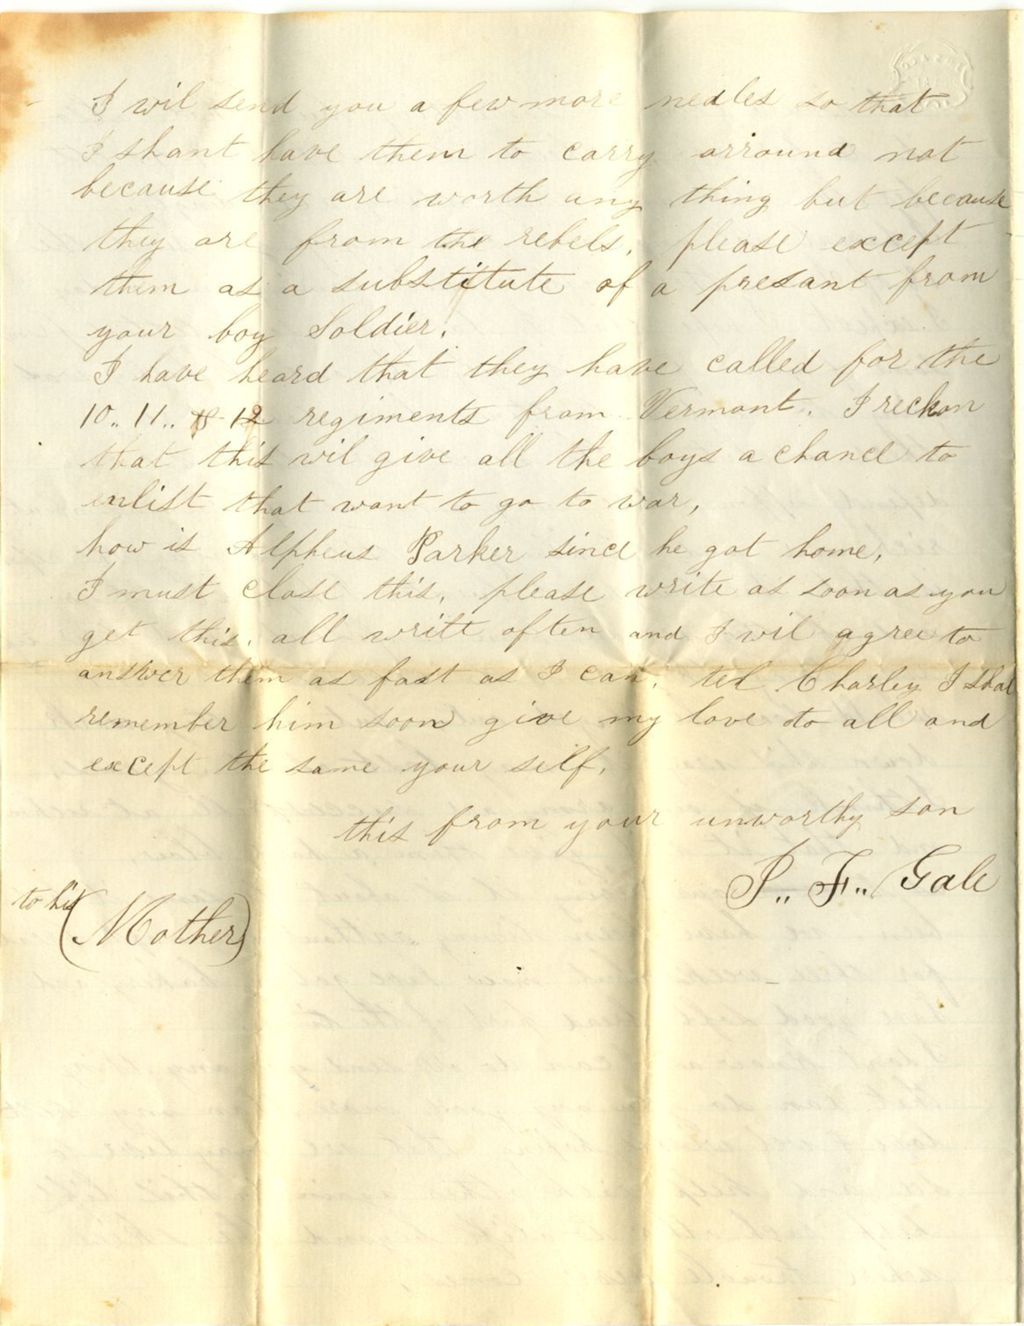 I wil send you a few more nedles so that
I shant have them to carry arround not
because they are worth any thing but because
they are from the rebels. please except
them as a substitute of a presant from
your boy Soldier.
I have heard that they have called for the
10,, 11,, & 12 regiments from Vermont. I reckon
that this wil give all the boys a chance to
enlist that want to go to war,
how is Alpheus Parker since he got home,
I must close this, please write as soon as you
get this. all write often and I wil agree to
answer them as fast as I can. tel Charley I shal
remember him soon give my love to all and
except the same your self,
this from your unworthy son
J,, F,, Gale
to his
(Mother)